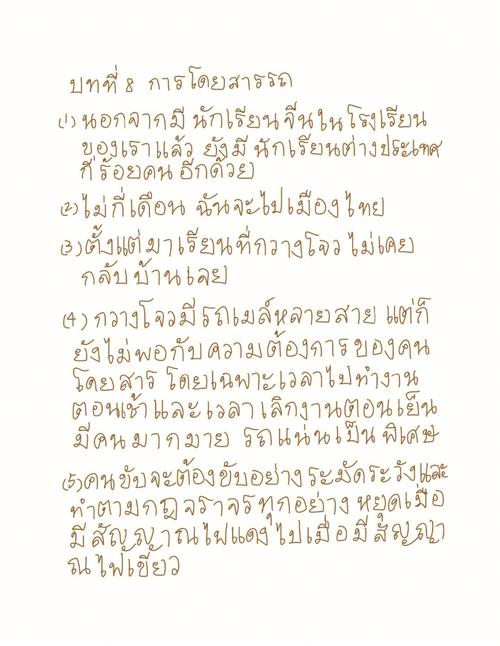 บทที่ 8 การโดยสารรถ
(1) นอกจากมี นักเรียน จีน ใน โรงเรียน
ของเราแล้ว ยังมี นักเรียนต่างประเทศ
กี่ ร้อยคน อีกด้วย
(2) ไม่กี่เดือน ฉันจะไปเมืองไทย
(3) ตั้งแต่มาเรียนที่กวางโจว ไม่เคย
กลับบ้านเลย
(4) กวางโจวมีรถเมล์หลายสาย แต่ก็
ยังไม่พอกับความต้องการของคน
โดยสาร โดยเฉพาะเวลาไปทำงาน
ตอนเช้าและเวลาเลิกงานตอนเย็น
มีคนมากมาย รถแน่นเป็นพิเศษ
(5) คนขับจะต้องขับอย่างระมัดระวังและ
ทำตามกฎจราจรทุกอย่าง หยุดเมื่อ
มีสัญญาณไฟแดง ไปเมื่อมีสัญญา
ณไฟเขียว